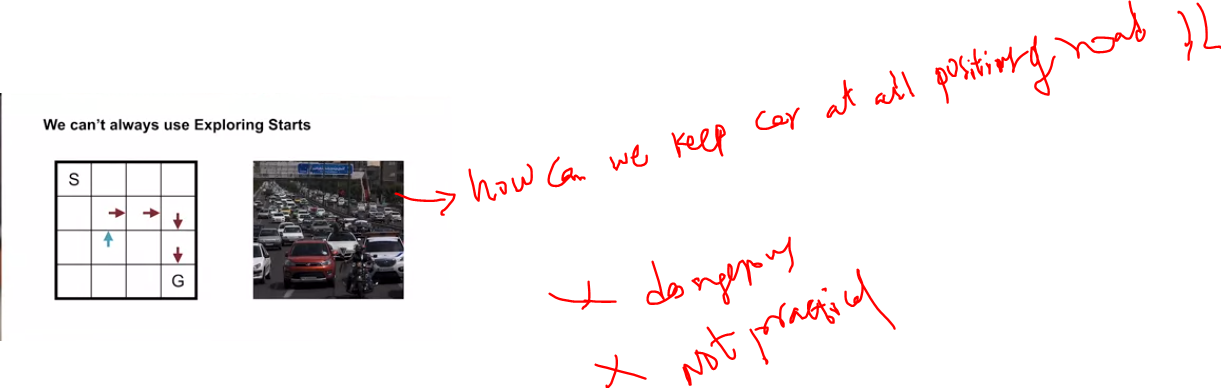 We can't always use Exploring Starts
S
G
how can we keep car at all position of road ??
x dangerous
x Not practical